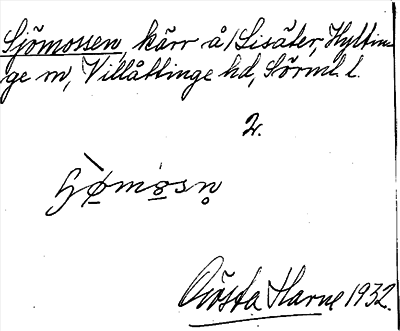 Sjömossen, kärr å/Lisäter, Hyltin-
ge sn, Villåttinge hd, Sörml l.
2.
Gösta Harne 1932.